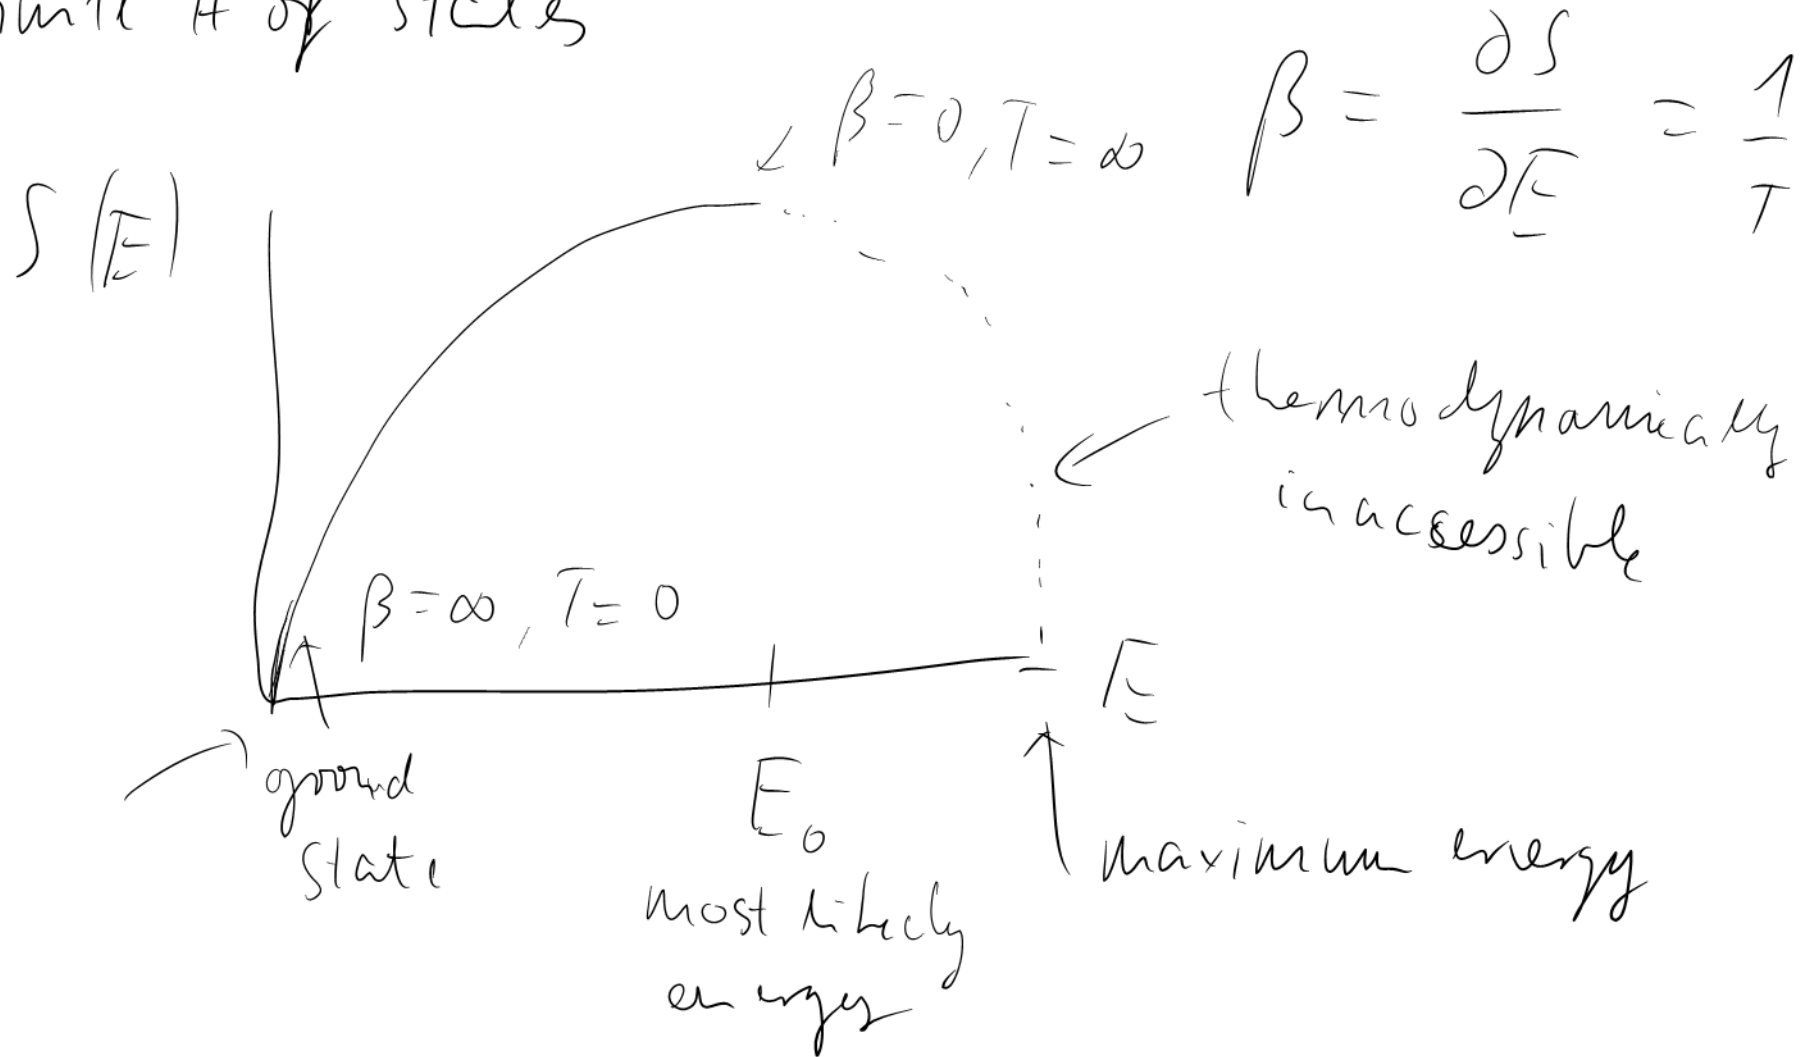 # of states
β = 0, T = ∞
β = ∂S/∂E = 1/T
S(E)
thermodynamically
inaccessible
β = ∞, T = 0
E
ground
state
E₀
most likely
energy
maximum energy